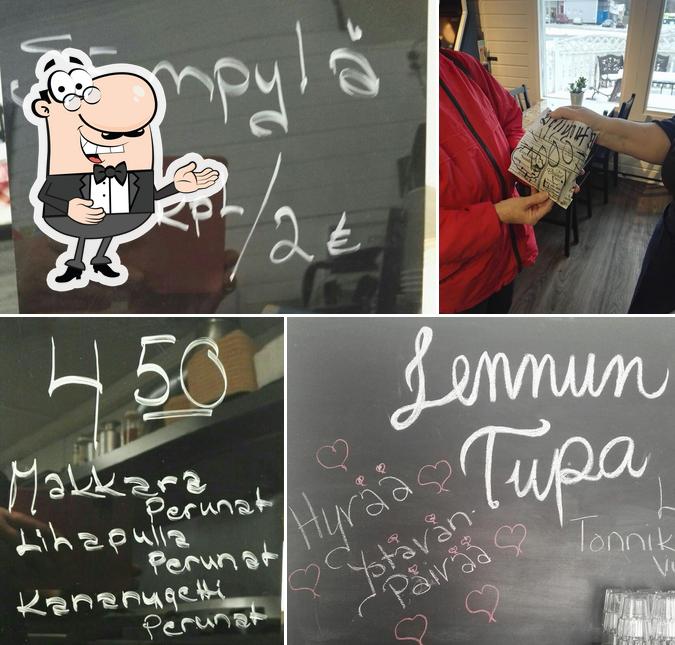 kpl/2€
4 50
Makkara
Perunat
Lihapulla
Perunat
Kananugetti
Perunat
Lennun
Tupa
Hyvää
Ystävän
Päivää
Tonnik